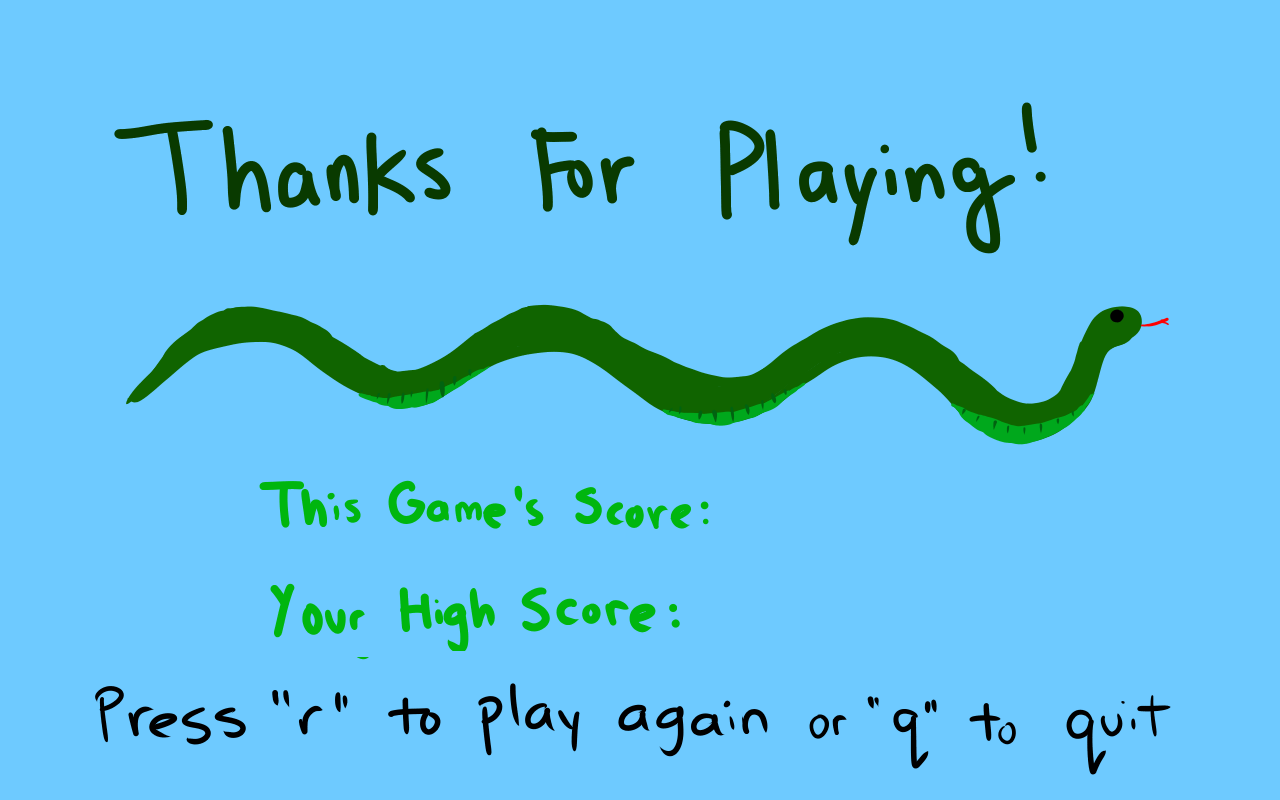 Thanks For Playing!
This Game's Score:
Your High Score:
Press "r" to play again or "q" to quit